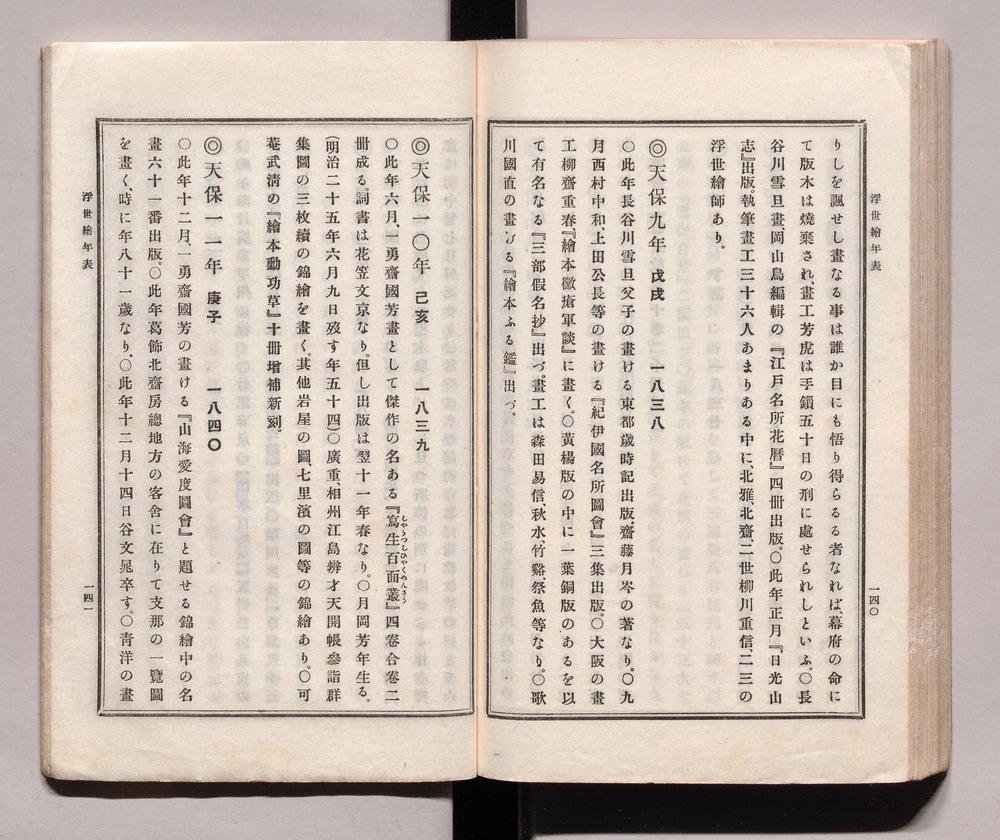 浮世繪年表
一四〇
りしを諷せし畫なる事は誰か目にも悟り得らるる者なれば、幕府の命に
て版木は燒棄され、畫工芳虎は手鎖五十日の刑に處せられしといふ。〇長
谷川雪旦畫、岡山鳥編輯の『江戸名所花曆』四冊出版。〇此年正月『日光山
志』出版。執筆畫工三十六人あまりある中に、北雅、北齋、二世柳川重信、二三の
浮世繪師あり。
◎天保九年 戊戌 一八三八
〇此年長谷川雪旦父子の畫ける東都歲時記出版。齋藤月岑の著なり。〇九
月西村中和、上田公長等の畫ける『紀伊國名所圖會』三集出版。〇大阪の畫
工柳齋重春『繪本黴瘡軍談』に畫く。〇黃楊版の中に一葉銅版のあるを以
て有名なる『三部假名抄』出づ。畫工は森田易信、秋水、竹谿、祭魚等なり。〇歌
川國直の畫ける『繪本ふる鑑』出づ。
◎天保一〇年 己亥 一八三九
〇此年六月、一勇齋國芳畫として傑作の名ある『寫生百面叢』四卷合卷二
しやうつしひやくめんさう
冊成る。詞書は花笠文京なり。但し出版は翌十一年春なり。〇月岡芳年生る。
(明治二十五年六月九日歿す年五十四)〇廣重、相州江島辨才天開帳參詣群
集圖の三枚續の錦繪を畫く。其他岩屋の圖、七里濱の圖等の錦繪あり。〇可
菴武淸の『繪本勳功草』十冊增補新刻。
◎天保一一年 庚子 一八四〇
〇此年十二月、一勇齋國芳の畫ける『山海愛度圖會』と題せる錦繪中の名
畫六十一番出版。〇此年葛飾北齋房總地方の客舍に在りて支那の一覽圖
を畫く、時に年八十一歲なり。〇此年十二月十四日谷文晁卒す。〇靑洋の畫
浮世繪年表
一四一